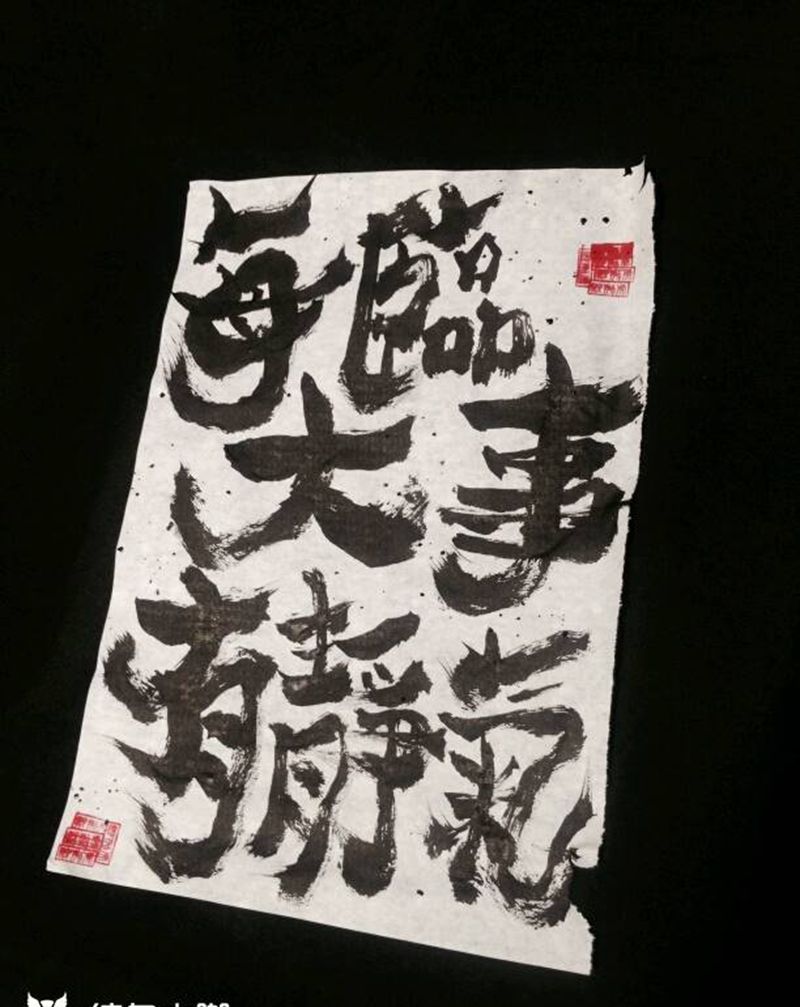 每臨
大事
有靜氣